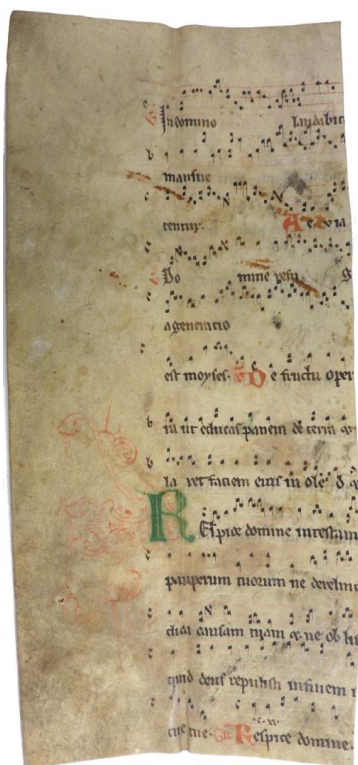 In domino laudabit
mansue
tentur. Ae v ia
Do mine refu g
a generatio
est moyses. De fructu oper
ra ut educas panem de terra &
la ret faciem eius in ole
Respice domine in testam
pauperum tuorum ne derelin
dica causam tuam & ne ob li
quid deus repulisti in finem
tue tue. Respice domine